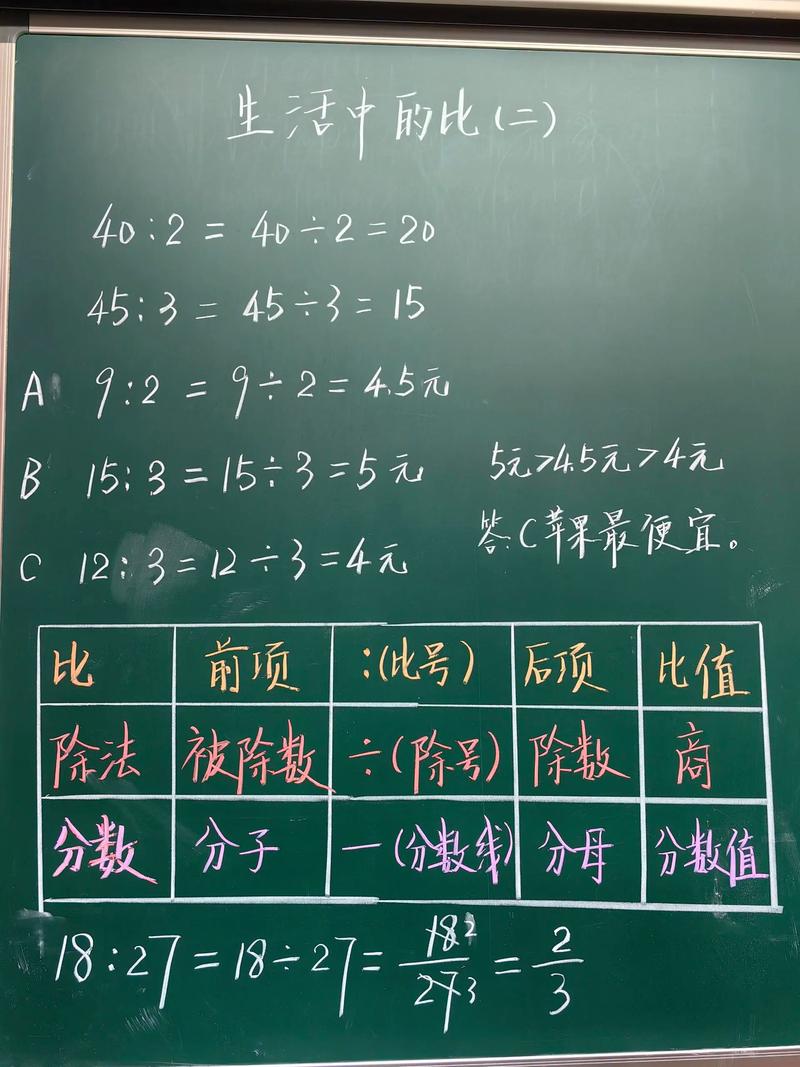 生活中的比(二)
40:2=40÷2=20
45:3=45÷3=15
A 9:2=9÷2=4.5元
B 15:3=15÷3=5元
5元>4.5元>4元
C 12:3=12÷3=4元
答:C苹果最便宜。
比 前项 :(比号) 后项 比值
除法 被除数 ÷(除号) 除数 商
分数 分子 —(分数线) 分母 分数值
18:27=18÷27=18 2/27 3=2/3